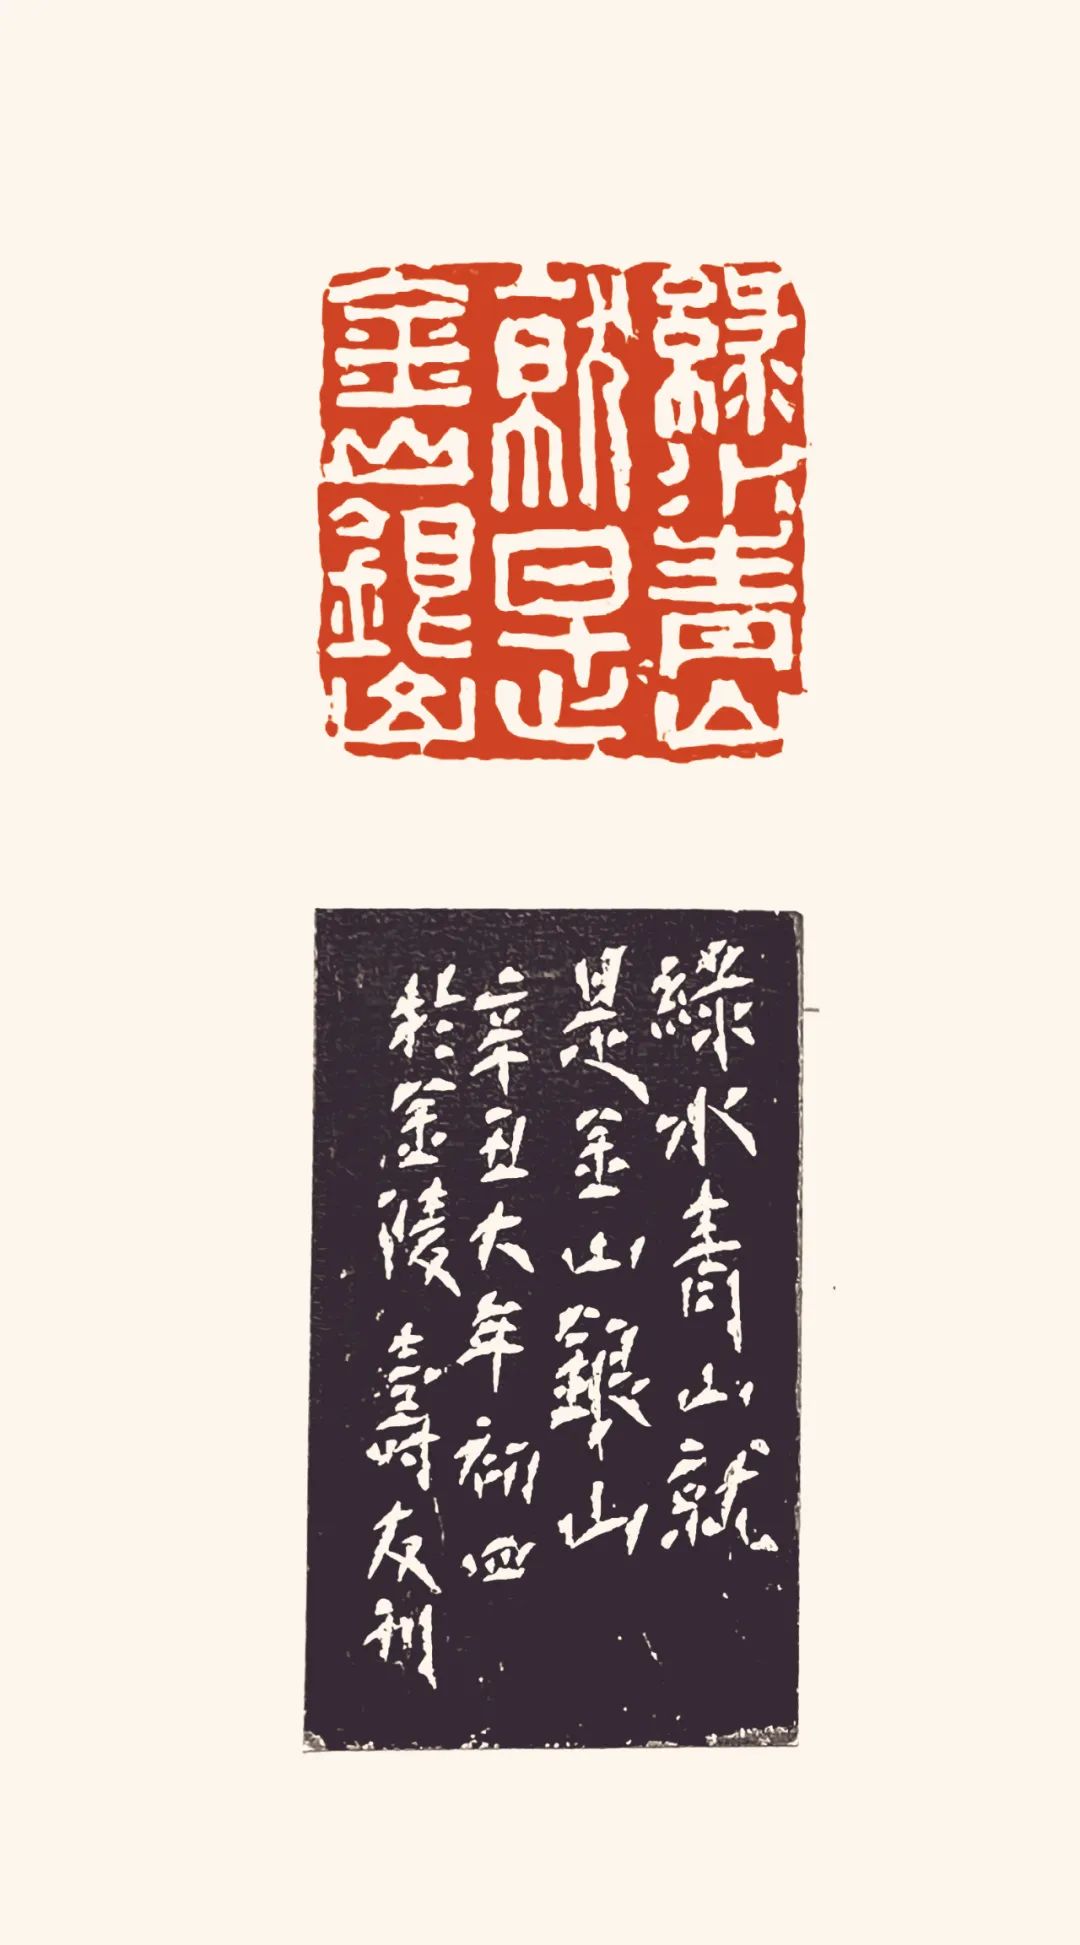 綠水青山
就是
金山銀山
綠水青山就
是金山銀山
辛丑大年初四
於金陵 壽友刊